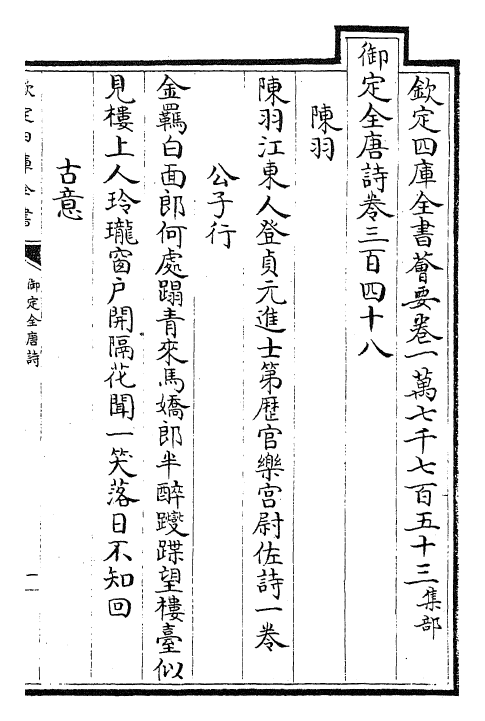 欽定四庫全書薈要卷一萬七千七百五十三集部
御定全唐詩卷三百四十八
陳羽
陳羽江東人登貞元進士第歴官樂宫尉佐詩一卷
公子行
金羈白面郎何處蹋青來馬嬌郎半醉躞蹀望樓臺似
見樓上人玲瓏窗户開隔花聞一笑落日不知回
古意
欽定四庫全書
御定全唐詩
一